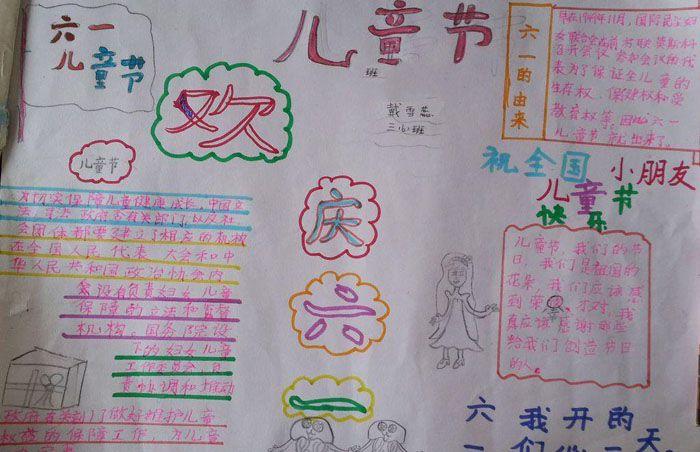 六一
儿童节
儿童节
班
欢
戴雪蕊
三心班
六一的由来
早在1949年11月,国际民主妇
女联合会在莫斯科
召开会议 参加会议的代
表为了保证全儿童的
生存权、保健权和受
教育权等,因此六一
儿童节就出来了。
祝全国小朋友
儿童节
快乐
儿童节
为切实保障儿童健康成长,中国立
法、司法、政府各有关部门,以及社
会团体都要建立了相应的机构
在全国人民代表大会和中
华人民共和国政治协会内
会设有负责妇女儿童
保障的立法和监督
机构,国务院设
下的妇女儿童
工作委员会,负
责协调和推动
政府有关部门做好维护儿童
权益的保障工作,为儿童
庆
六
一
儿童节,我们的节
日,我们是祖国的
花朵,我们应该感
到荣 才对,我
真应该感谢那些
给我们创造节日
的人。
六我开的
一们心一天